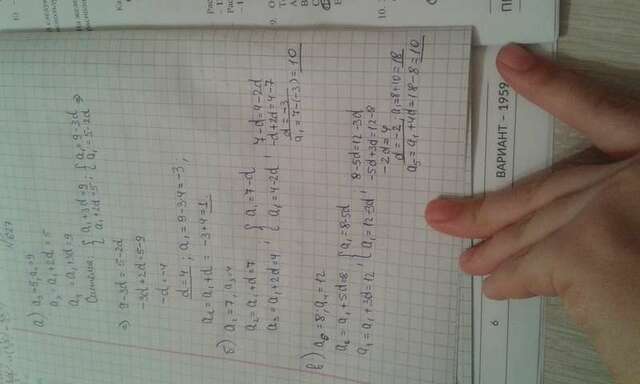 №627
а) a₃=5, a₄=9
a₃=a₁+2d=5
a₄=a₁+3d=9
Система: { a₁+3d=9 a₁+2d=5 ; { a₁=9-3d a₁=5-2d ⇒
⇒) 9-3d=5-2d
-3d+2d=5-9
-d=-4
d=4 ; a₁=9-3·4=-3;
a₂=a₁+d=-3+4=1
б) a₂=7, a₃=4
a₂=a₁+d=7
a₃=a₁+2d=4 ; { a₁=7-d a₁=4-2d ;
7-d=4-2d
-d+2d=4-7
d=-3
a₁=7-(-3)=10
в) a₆=8; a₄=12
a₆=a₁+5d=8
a₄=a₁+3d=12 ; { a₁=8-5d a₁=12-3d ;
8-5d=12-3d
-5d+3d=12-8
-2d=4
d=-2 ; a₁=8+10=18
a₅=a₁+4d=18-8=10
6
ВАРИАНТ – 1959
9.
10.